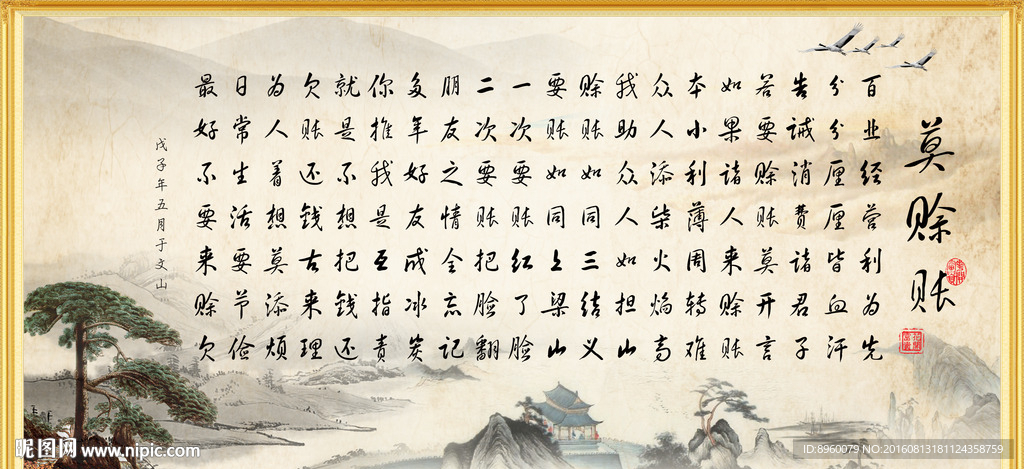 莫赊账
百业经营利为先
分分厘厘皆血汗
告诫消费诸君子
若要赊账莫开言
如果诸人来赊账
本小利薄周转难
众人添柴火焰高
我助众人如担山
赊账如同三结义
要账如同上梁山
一次要账红了脸
二次要账把脸翻
朋友之情全忘记
多年好友成冰炭
你推我是互指责
就是不想把钱还
欠账还钱古来理
为人着想莫添烦
日常生活要节俭
最好不要来赊欠
戊子年五月于文山
昵图网 www.nipic.com
ID:8960079 NO:20160813181124358759